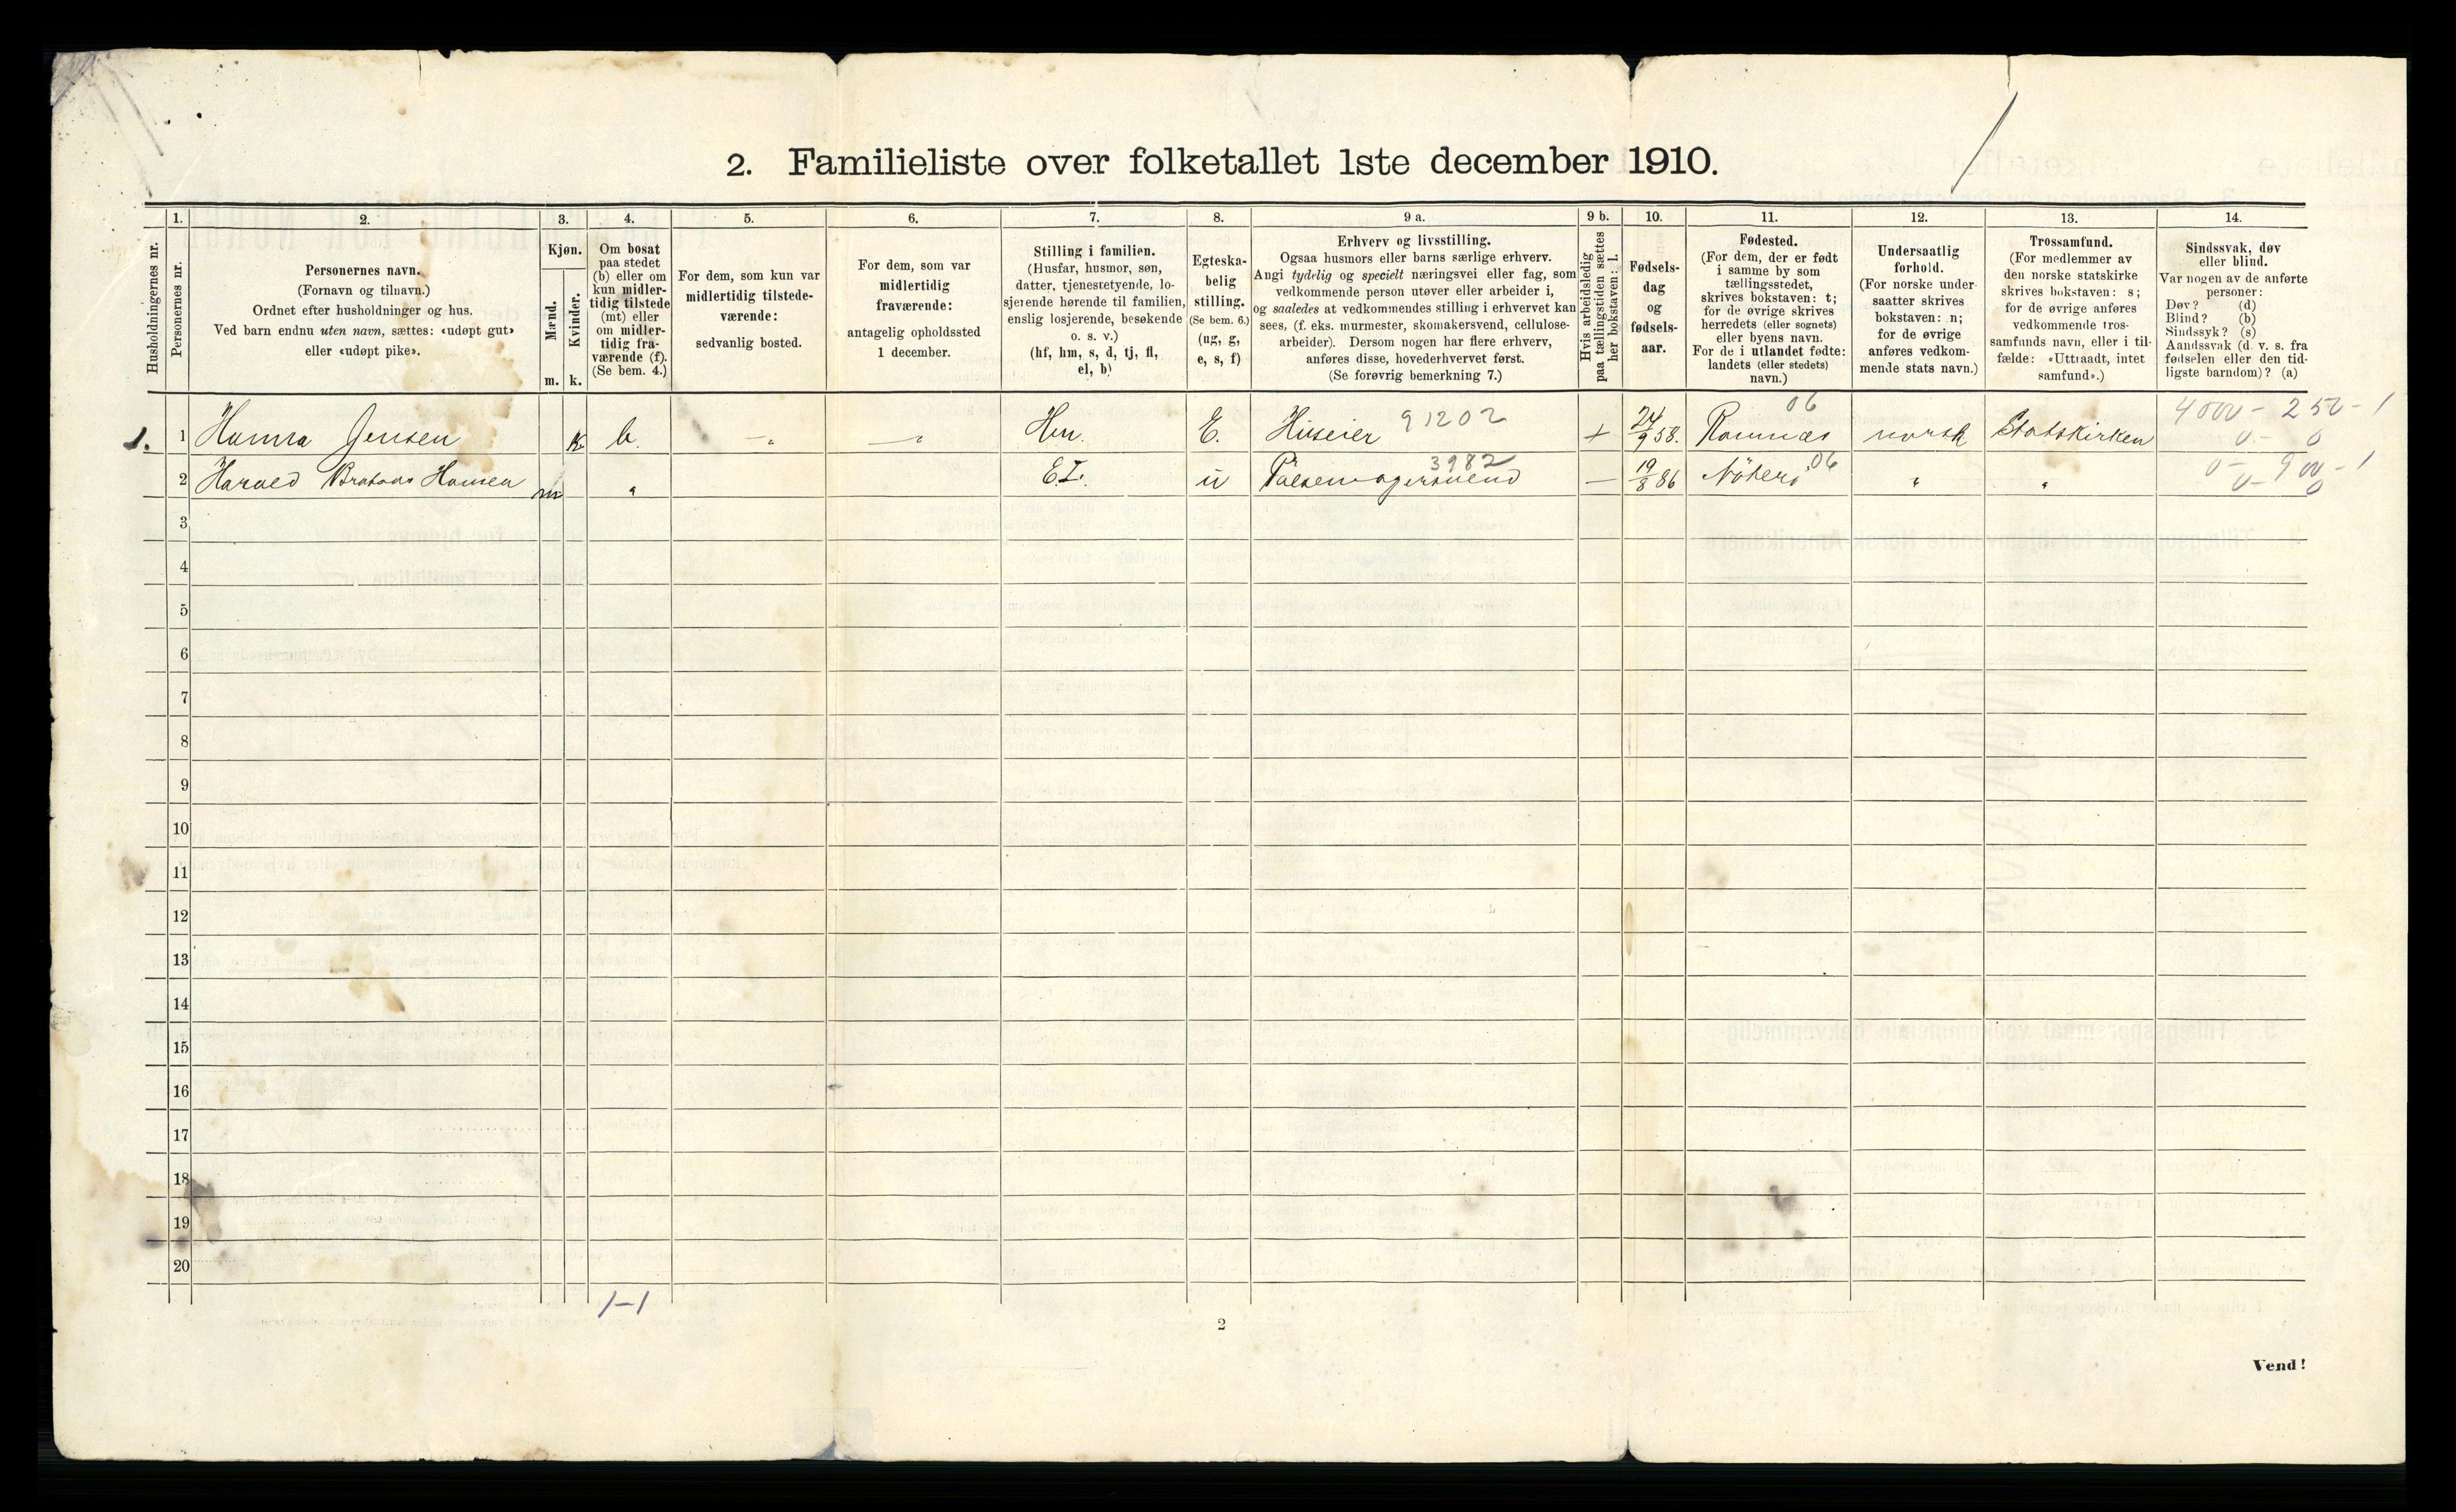 2. Familieliste over folketallet 1ste december 1910.
Husholdningernes nr.
1.
Personernes nr.
2.
Personernes navn.
(Fornavn og tilnavn.)
Ordnet efter husholdninger og hus.
Ved barn endnu uten navn, sættes: «udøpt gut»
eller «udøpt pike».
3.
Kjøn.
Mænd.
m.
Kvinder.
k.
4.
Om bosat
paa stedet
(b) eller om
kun midler-
tidig tilstede
(mt) eller
om midler-
tidig fra-
værende (f).
(Se bem. 4.)
5.
For dem, som kun var
midlertidig tilstede-
værende:
sedvanlig bosted.
6.
For dem, som var
midlertidig
fraværende:
antagelig opholdssted
1 december.
7.
Stilling i familien.
(Husfar, husmor, søn,
datter, tjenestetyende, lo-
sjerende hørende til familien,
enslig losjerende, besøkende
o. s. v.)
(hf, hm, s, d, tj, fl,
el, b)
8.
Egteska-
belig
stilling.
(Se bem. 6.)
(ug, g,
e, s, f)
9 a.
Erhverv og livsstilling.
Ogsaa husmors eller barns særlige erhverv.
Angi tydelig og specielt næringsvei eller fag, som
vedkommende person utøver eller arbeider i,
og saaledes at vedkommendes stilling i erhvervet kan
sees, (f. eks. murmester, skomakersvend, cellulose-
arbeider). Dersom nogen har flere erhverv,
anføres disse, hovederhvervet først.
(Se forøvrig bemerkning 7.)
9 b.
Hvis arbeidsledig
paa tællingstiden sættes
her bokstaven: l.
10.
Fødsels-
dag
og
fødsels-
aar.
11.
Fødested.
(For dem, der er født
i samme by som
tællingsstedet,
skrives bokstaven: t;
for de øvrige skrives
herredets (eller sognets)
eller byens navn.
For de i utlandet fødte:
landets (eller stedets)
navn.)
12.
Undersaatlig
forhold.
(For norske under-
saatter skrives
bokstaven: n;
for de øvrige
anføres vedkom-
mende stats navn.)
13.
Trossamfund.
(For medlemmer av
den norske statskirke
skrives bokstaven: s;
for de øvrige anføres
vedkommende tros-
samfunds navn, eller i til-
fælde: «Uttraadt, intet
samfund».)
14.
Sindssvak, døv
eller blind.
Var nogen av de anførte
personer:
Døv? (d)
Blind? (b)
Sindssyk? (s)
Aandssvak (d. v. s. fra
fødselen eller den tid-
ligste barndom)? (a)
06 4000 - 250 - 1
1. 1 Hanna Jensen K b. — „ — „ Hm. E. Huseier 91202 + 24/9 58. Ramnæs norsk Statskirken 0 - 0
3982 06 0 - 900 - 1
2 Harald Hansen m „ E.L. u Pølsemagersvend — 19/8 86 „ „ 0 - 0
3
4
5
6
7
8
9
10
11
12
13
14
15
16
17
18
19
20
1-1
2
Vend!